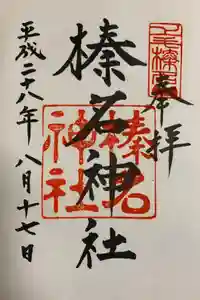 奉拝
榛名神社
榛名神社
平成二十八年八月十七日